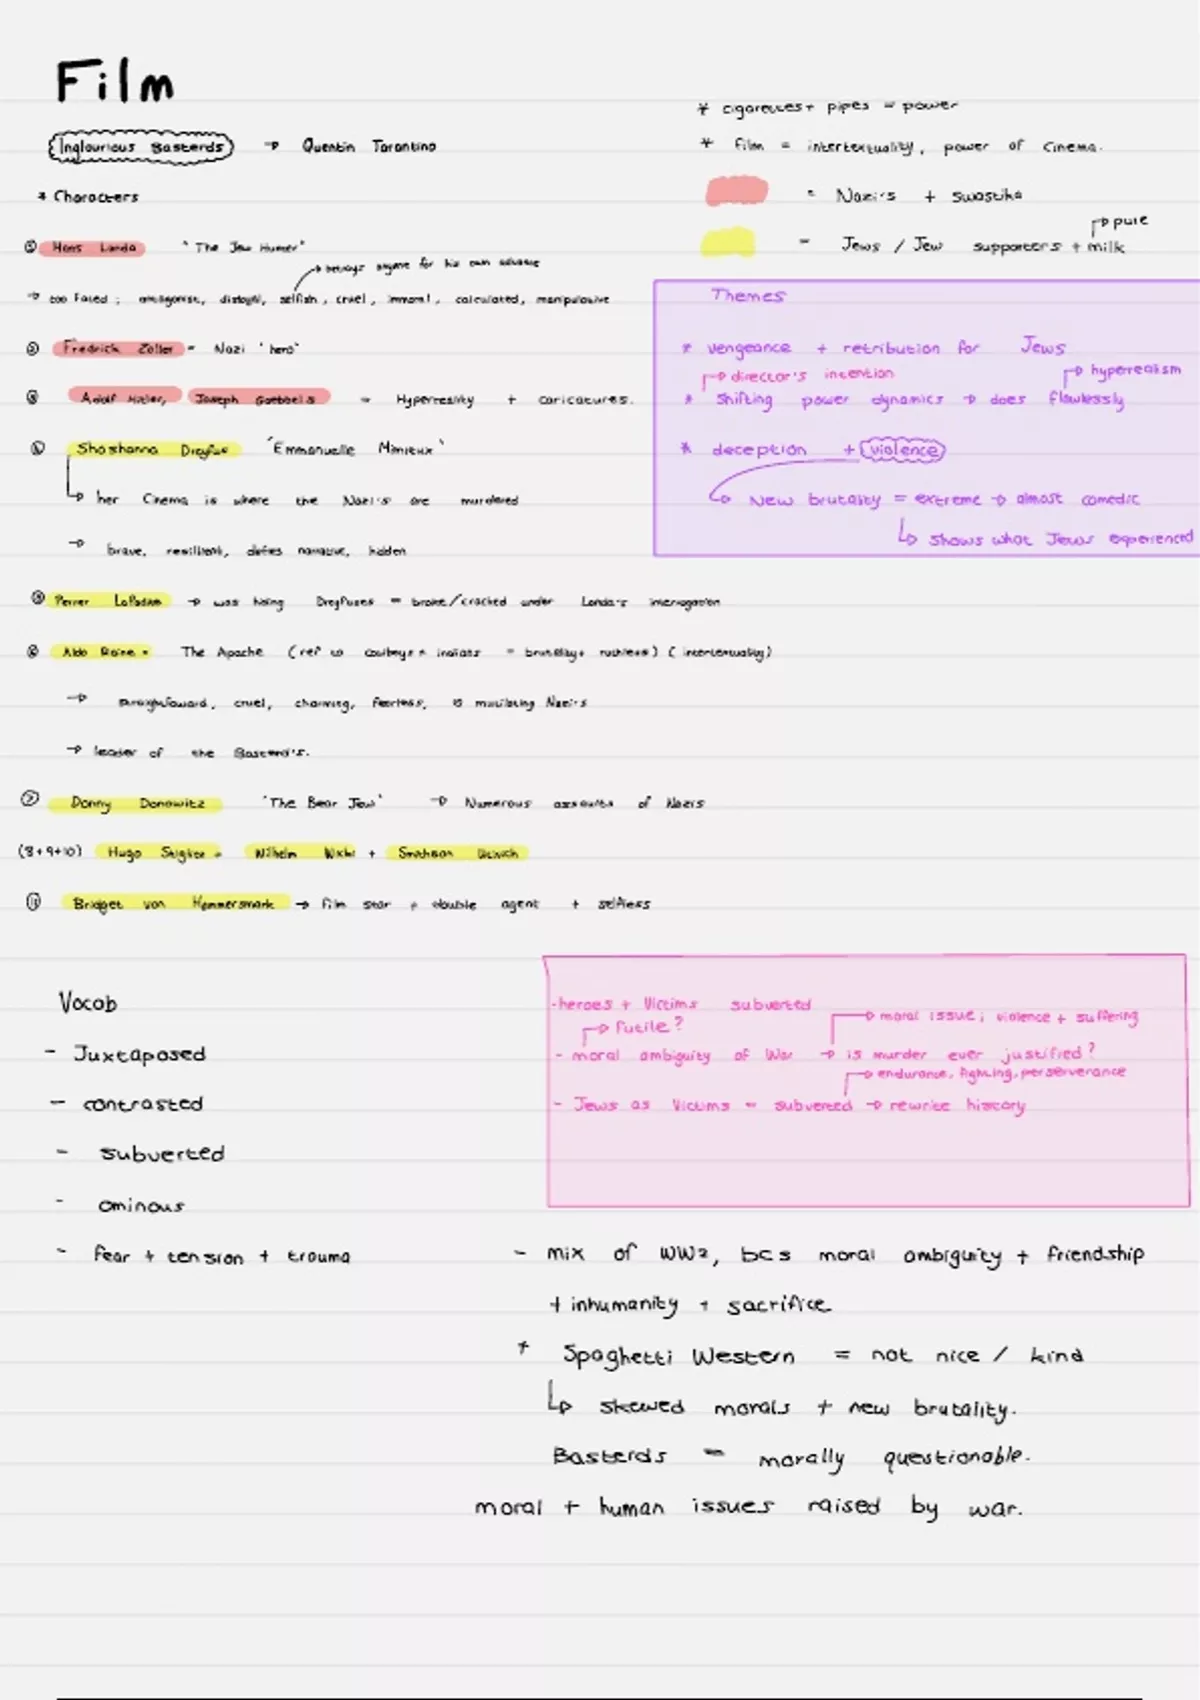 Film
Inglourious Basterds → Quentin Tarantino
* Characters
① Hans Landa "The Jew Hunter"
↱ betrays anyone for his own advance
→ too faced ; antagonist, disloyal, selfish, cruel, immoral, calculated, manipulative
② Fredrick Zoller = Nazi 'hero'
③ Adolf Hitler, Joseph Goebbels = Hyperreality + caricatures.
Shoshanna Dreyfus 'Emmanuelle Mimieux'
↳ her Cinema is where the Nazi's are murdered
→ brave, resillient, defies narrative, hidden
Perrier LaPadite → was hiding Dreyfuses = broke/cracked under Landa's interrogation
⑥ Aldo Raine = The Apache (ref to cowboys + indians = brutality + ruthless) (intertextuality)
→ straightfoward, cruel, charming, fearless, mutilating Nazi's
→ leader of the Basterd's.
⑦ Donny Donowitz 'The Bear Jew' → Numerous assaults of Nazis
(8+9+10) Hugo Stiglitz + Wilhelm Wicki +
⑪ Bridget von Hammersmark → film star + double agent + selfless
* cigarettes + pipes = power
* film = intertextuality, power of Cinema.
= Nazi's + swastika
↱ pure
= Jews / Jew supporters + milk
Themes
* vengeance + retribution for Jews
↱ director's intention ↱ hyperrealism
* Shifting power dynamics → does flawlessly
* deception + violence
↳ New brutality = extreme → almost comedic
↳ shows what Jews experienced
Vocab
- Juxtaposed
- contrasted
- subverted
- ominous
- fear + tension + trauma
- heroes + Victims subverted
↱ futile? ↱ moral issue; violence + suffering
- moral ambiguity of War → is murder ever justified?
↱ endurance, fighting, perserverance
- Jews as Victims = subverted → rewrite history
- mix of WW2, bcs moral ambiguity + friendship
+ inhumanity + sacrifice
* Spaghetti Western = not nice / kind
↳ skewed morals + new brutality.
Basterds = morally questionable.
moral + human issues raised by war.